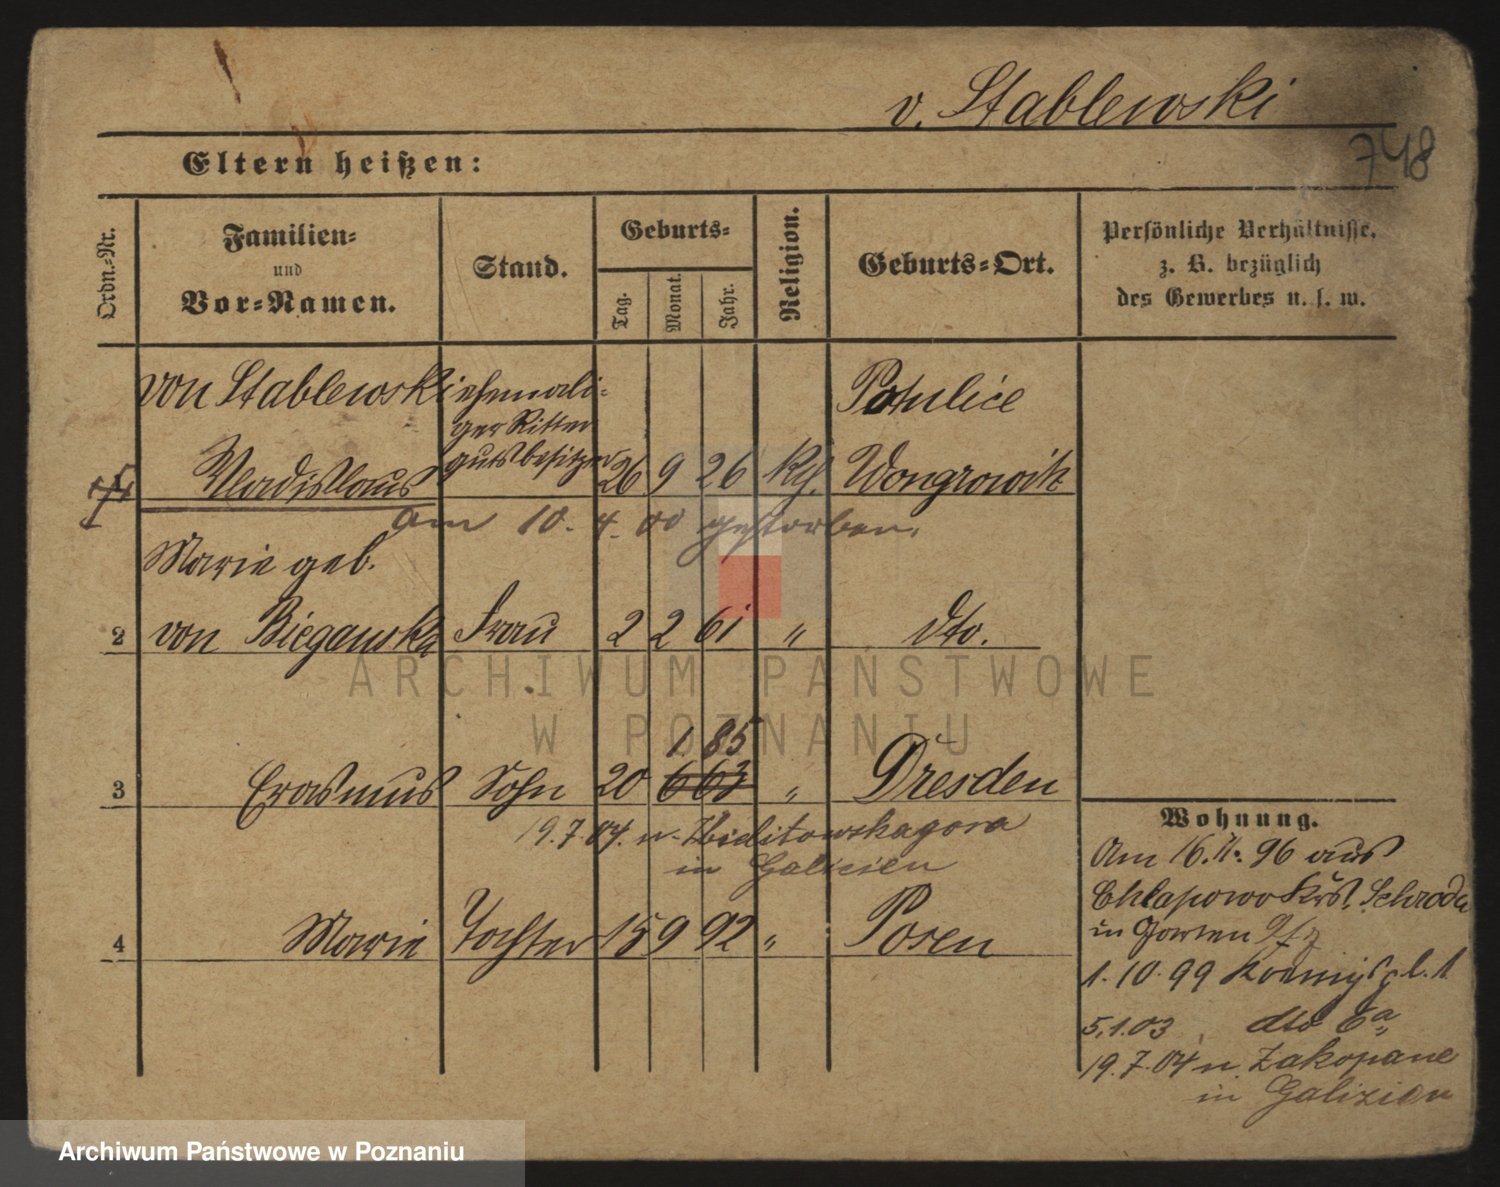 v. Stablewski
748
Eltern heißen:
Ordn.-Nr.
Familien-
und
Vor-Namen.
Stand.
Geburts-
Tag.
Monat.
Jahr.
Religion.
Geburts-Ort.
Persönliche Verhältnisse,
z. B. bezüglich
des Gewerbes u. s. w.
von Stablewski ehemali-
ger Ritter
gutsbesitzer
Potulice
Wladislaus 26 9 26 kth. Wongrowitz
am 10. 4. 00 gestorben.
Marie geb.
2 von Bieganska Frau 2 2 61 " dto.
1 85
3 Erasmus Sohn 20 6 63 " Dresden
19.7.04. n.
in Galizien
4 Marie Tochter 15 9 92 " Posen
Wohnung.
Am 16. 11. 96 aus
Chlapowo Krs. Schroda
in
1. 10. 99 Königspl. 1
5.1.03 dto 6a
19.7.04 n. Zakopane
in Galizien
ARCHIWUM PAŃSTWOWE
W POZNANIU
Archiwum Państwowe w Poznaniu